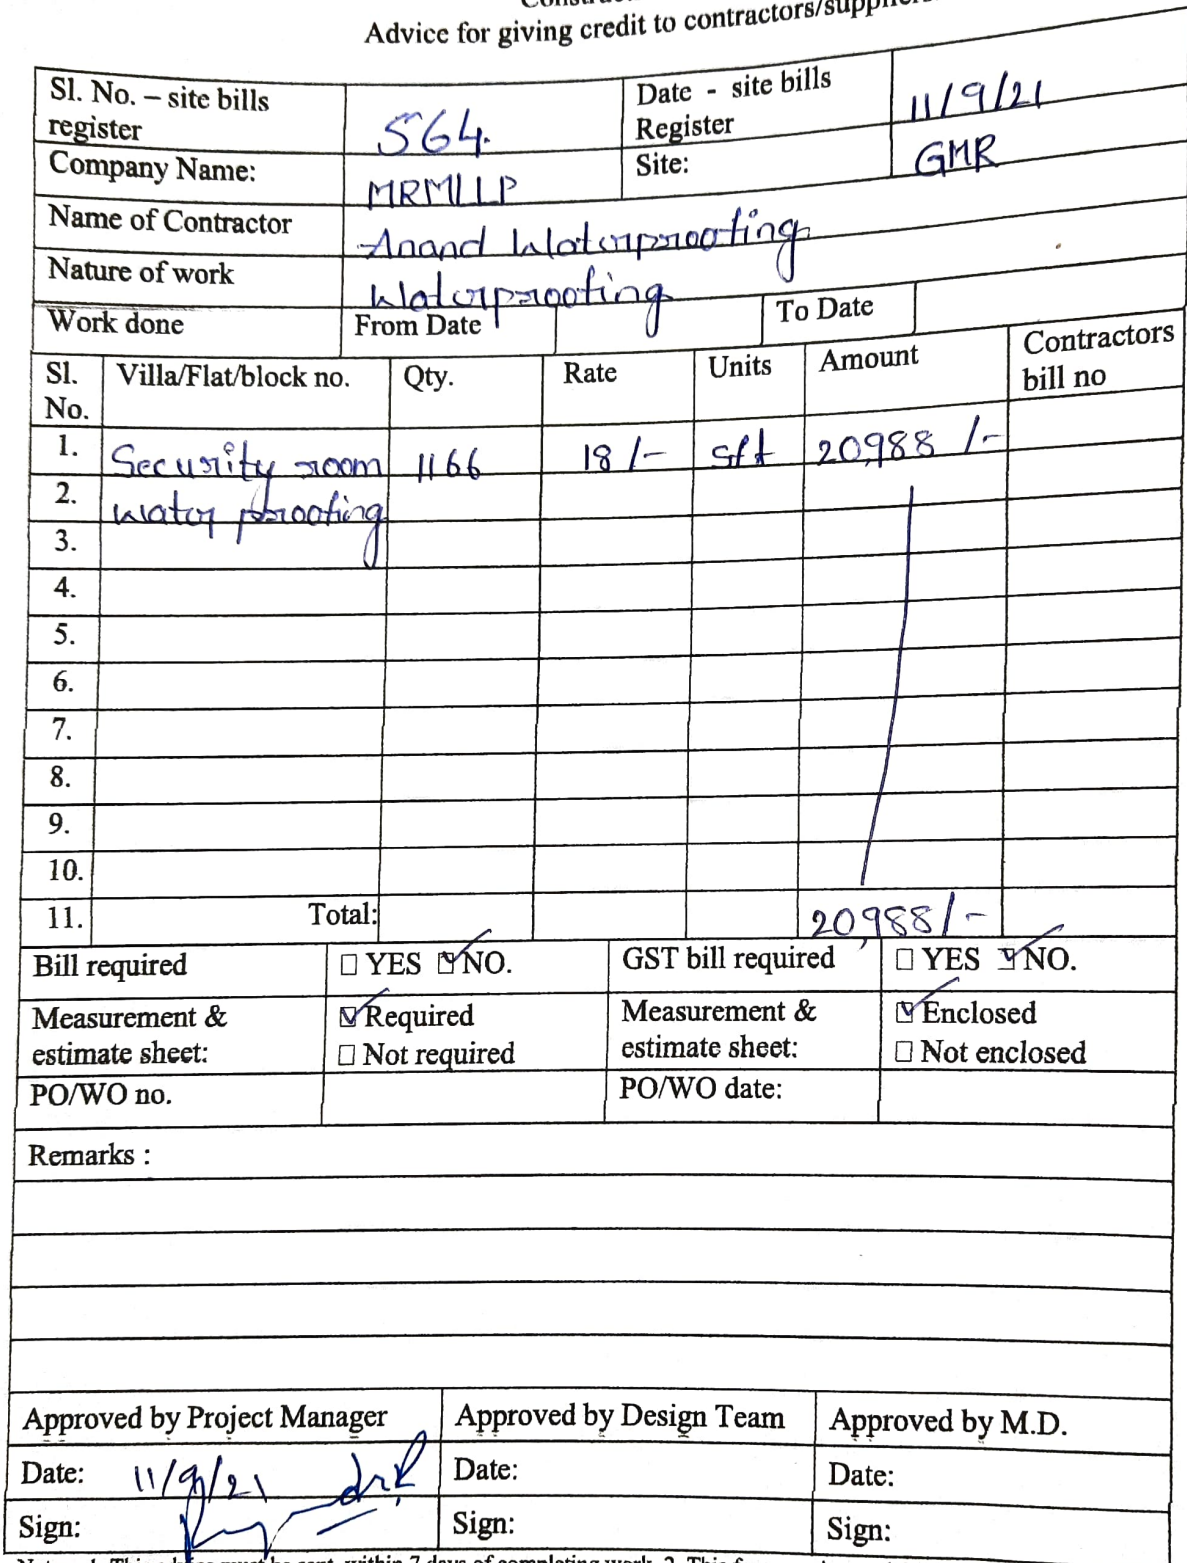 Advice for giving credit to contractors/suppliers
Sl. No. – site bills register 564. Date - site bills Register 11/9/21
Company Name: MRMLLP Site: GMR
Name of Contractor Anand Waterproofing
Nature of work Waterproofing
Work done From Date To Date
Sl. No. Villa/Flat/block no. Qty. Rate Units Amount Contractors bill no
1. Security room 1166 18/- sft 20,988 /-
2. water proofing
3.
4.
5.
6.
7.
8.
9.
10.
11. Total: 20,988/-
Bill required ☐ YES ☑ NO. GST bill required ☐ YES ☑ NO.
Measurement & estimate sheet: ☑ Required ☐ Not required Measurement & estimate sheet: ☑ Enclosed ☐ Not enclosed
PO/WO no. PO/WO date:
Remarks :
Approved by Project Manager Approved by Design Team Approved by M.D.
Date: 11/9/21 Date: Date:
Sign: Sign: Sign: